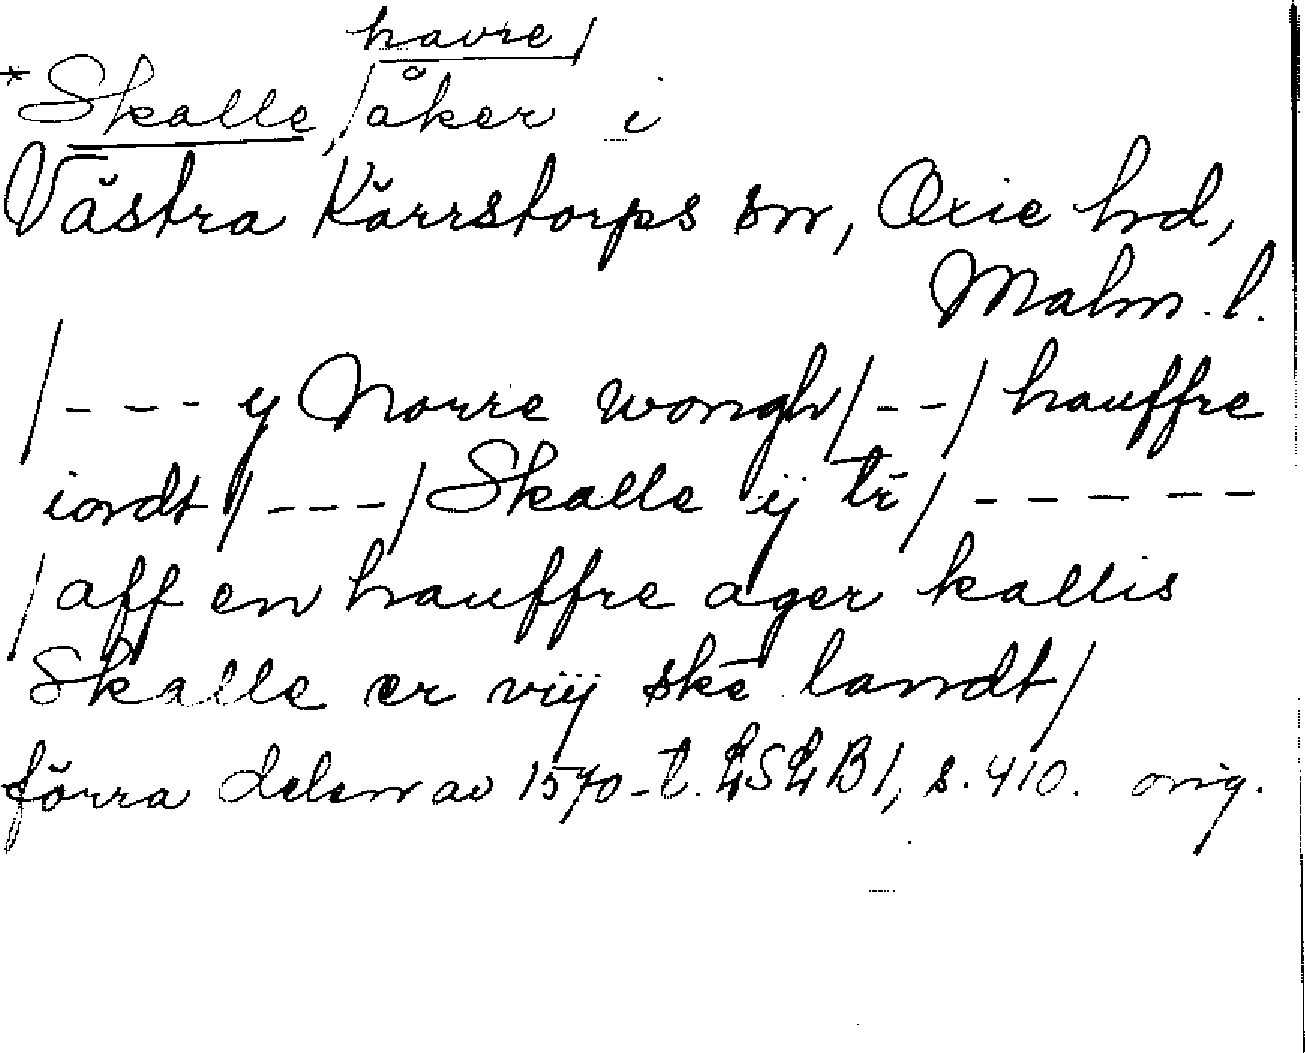 havre/
*Skalle, /åker i
Västra Kärrstorps sn, Oxie hd,
Malm. l.
/--- y Norre wongh/--/ hauffre
iordt/---/Skalle ÿ tr̄/-----
/aff en hauffre ager kallis
Skalle er viij skē landt/
förra delen av 1570-t. LSLB1, s. 410. orig.